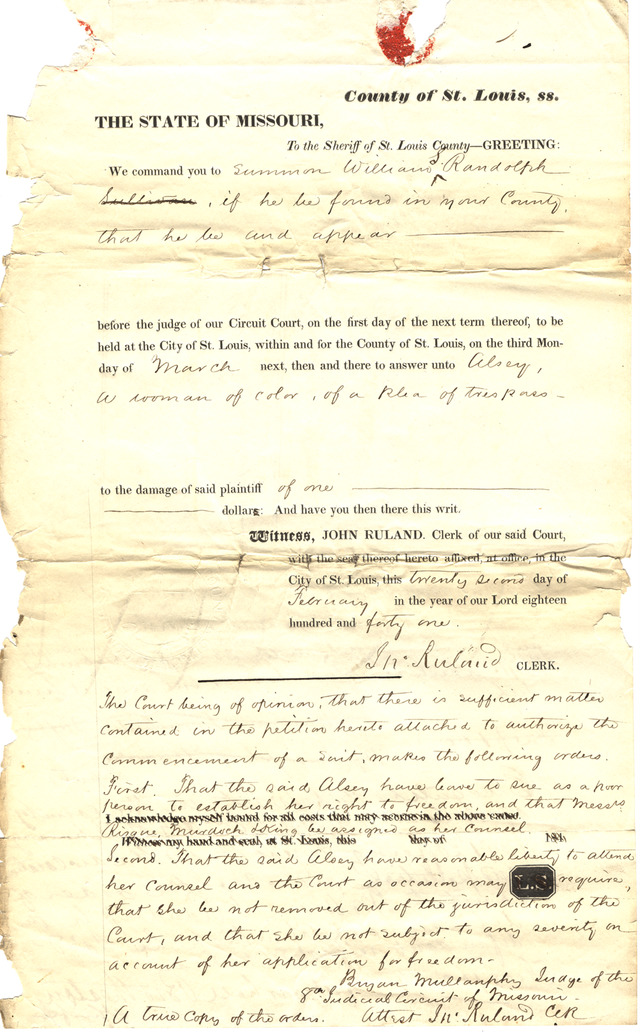 County of St. Louis, ss.
THE STATE OF MISSOURI,
To the Sheriff of St. Louis County—GREETING:
We command you to summon William S Randolph
Sullivan, if he be found in your County,
that he be and appear
before the judge of our Circuit Court, on the first day of the next term thereof, to be
held at the City of St. Louis, within and for the County of St. Louis, on the third Mon-
day of March next, then and there to answer unto Alsey,
a woman of color, of a plea of trespass
to the damage of said plaintiff of one
dollars: And have you then there this writ.
Witness, JOHN RULAND. Clerk of our said Court,
with the seal thereof hereto affixed, at office, in the
City of St. Louis, this twenty second day of
February in the year of our Lord eighteen
hundred and forty one.
Jno Ruland CLERK.
The Court being of opinion, that there is sufficient matter
contained in the petition hereto attached to authorize the
commencement of a suit, makes the following orders.
First. That the said Alsey have leave to sue as a poor
person to establish her right to freedom, and that Messrs
I acknowledge myself bound for all costs that may accrue in the above cause.
Risque, Murdoch & King be assigned as her counsel.
Witness my hand and seal, at St. Louis, this day of 184
Second. That the said Alsey have reasonable liberty to attend
her Counsel and the Court as occasion may L.S. require,
that she be not removed out of the jurisdiction of the
Court, and that she be not subject to any severity on
account of her application for freedom.
Bryan Mullanphy Judge of the
8th Judicial Circuit of Missouri.
A true Copy of the orders. Attest Jno Ruland Clk